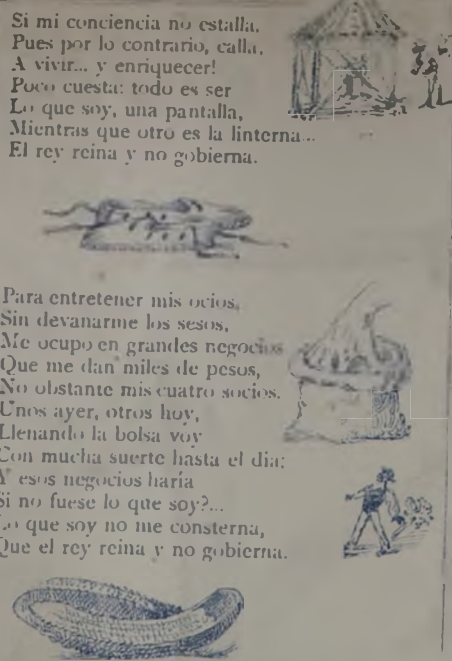 Si mi conciencia no estalla,
Pues por lo contrario, calla,
A vivir... y enriquecer!
Poco cuesta: todo es ser
Lo que soy, una pantalla,
Mientras que otro es la linterna...
El rey reina y no gobierna.
Para entretener mis ocios,
Sin devanarme los sesos,
Me ocupo en grandes negocios
Que me dan miles de pesos,
No obstante mis cuatro socios.
Unos ayer, otros hoy,
Llenando la bolsa voy
Con mucha suerte hasta el dia:
Y esos negocios haría
Si no fuese lo que soy?...
Lo que soy no me consterna,
Que el rey reina y no gobierna.